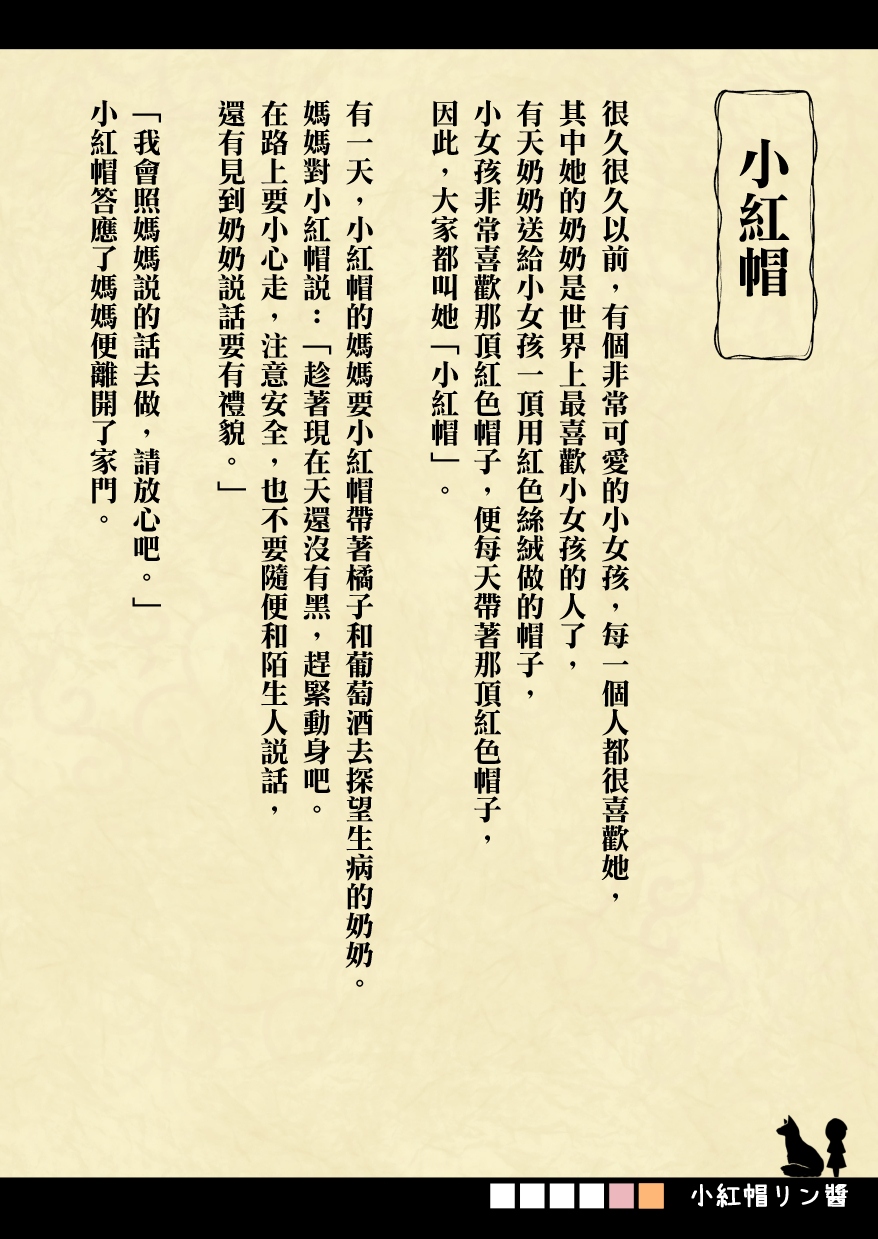 小紅帽
很久很久以前，有個非常可愛的小女孩，每一個人都很喜歡她，
其中她的奶奶是世界上最喜歡小女孩的人了，
有天奶奶送給小女孩一頂用紅色絲絨做的帽子，
小女孩非常喜歡那頂紅色帽子，便每天帶著那頂紅色帽子，
因此，大家都叫她「小紅帽」。
有一天，小紅帽的媽媽要小紅帽帶著橘子和葡萄酒去探望生病的奶奶。
媽媽對小紅帽說：「趁著現在天還沒有黑，趕緊動身吧。
在路上要小心走，注意安全，也不要隨便和陌生人說話，
還有見到奶奶說話要有禮貌。」
「我會照媽媽說的話去做，請放心吧。」
小紅帽答應了媽媽便離開了家門。
小紅帽リン醬